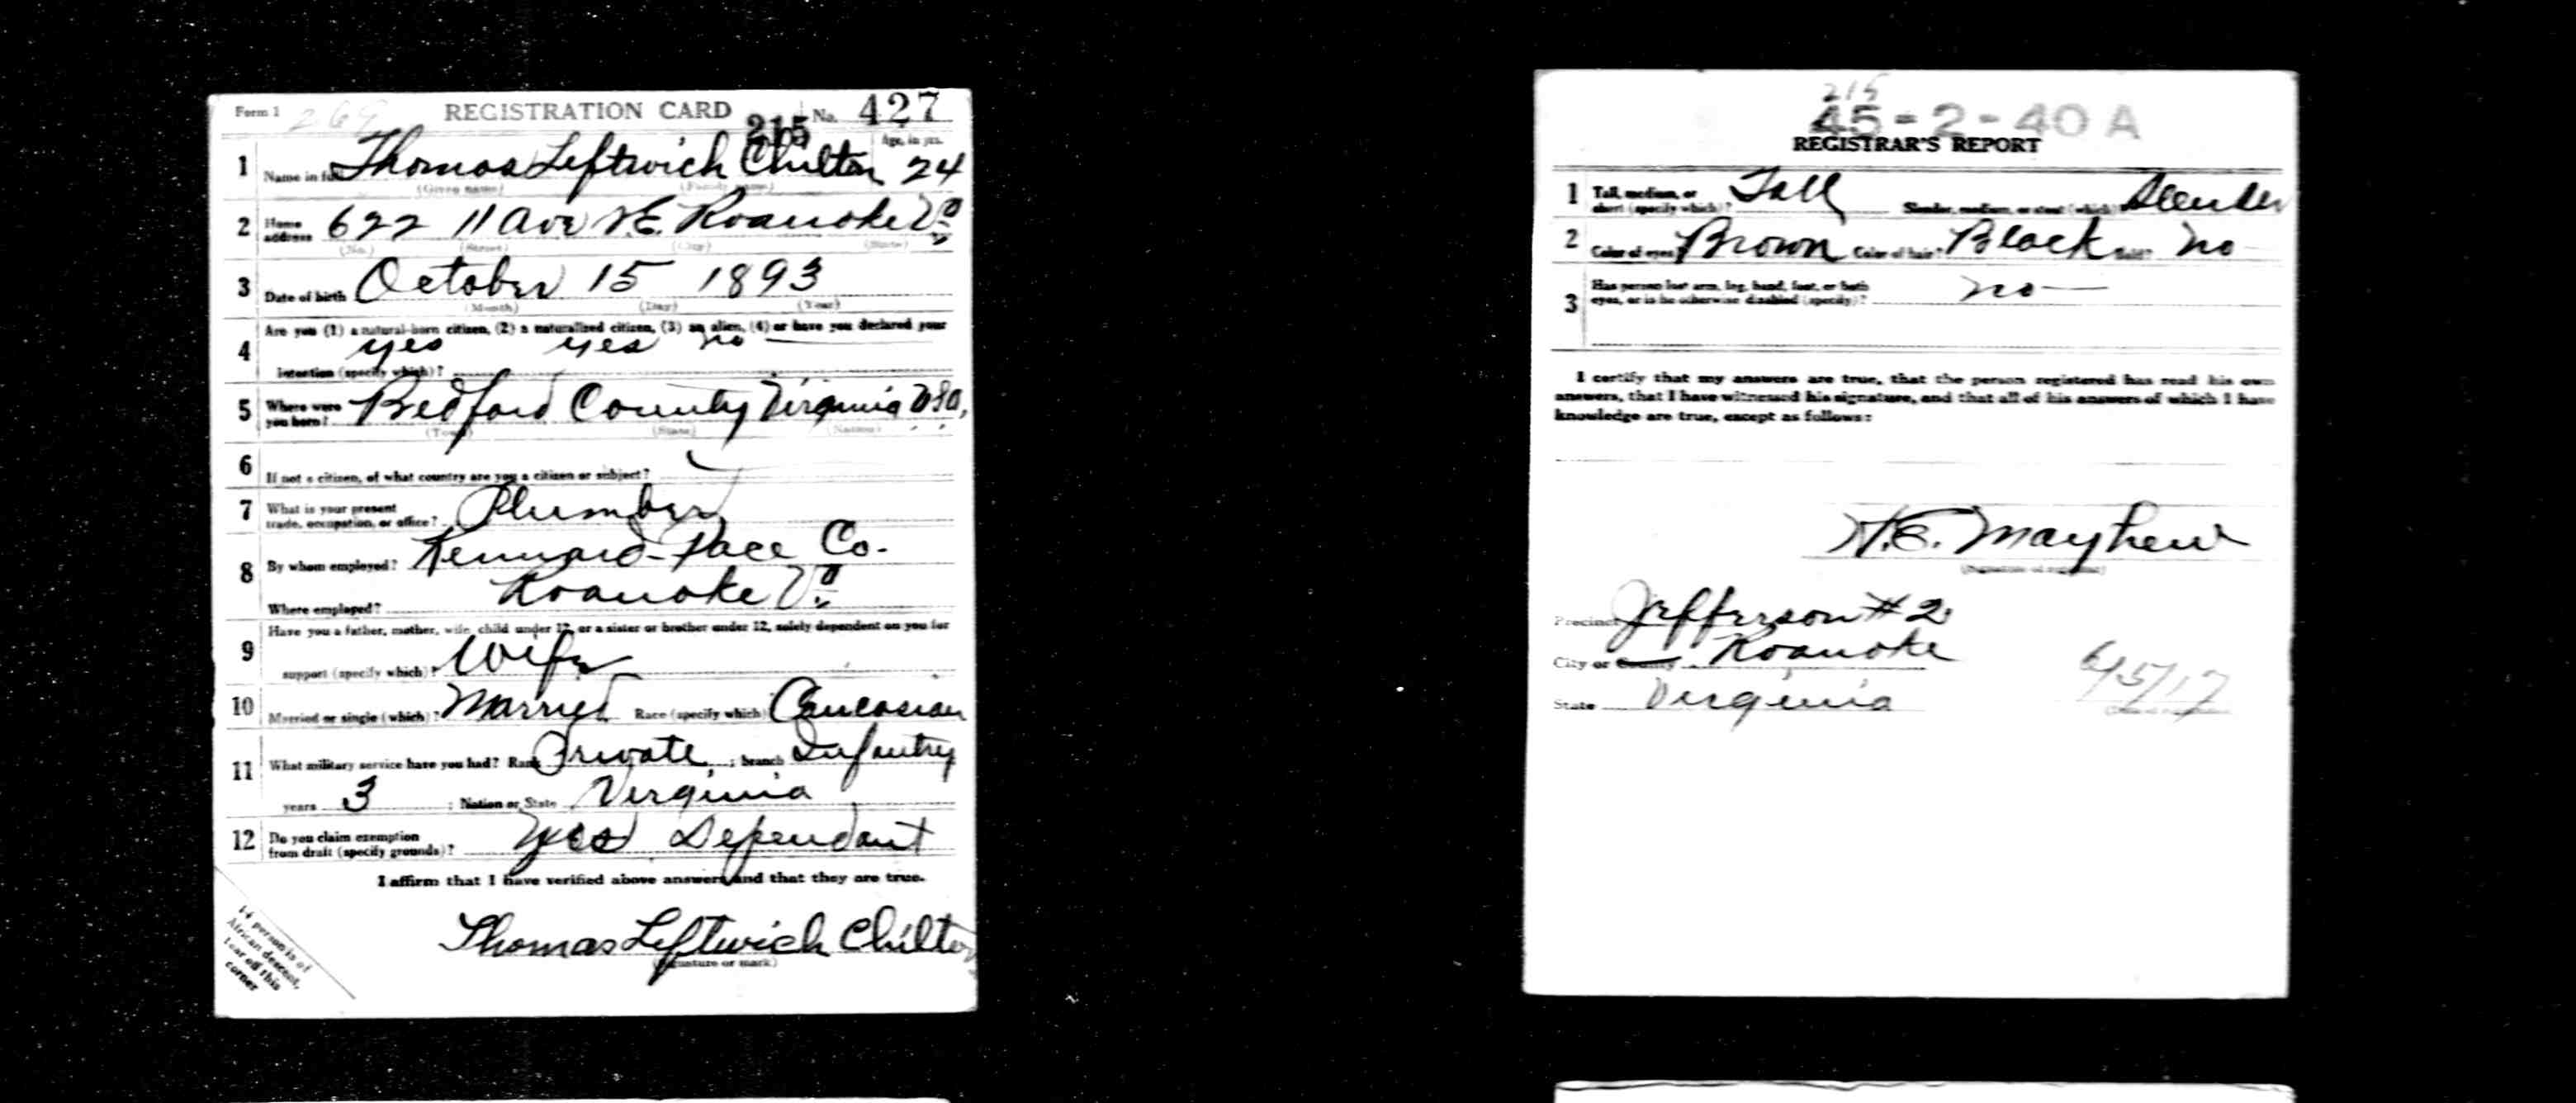 Form 1 269 REGISTRATION CARD 215 No. 427
Age, in yrs.
1 Name in full Thomas Leftwich Chilton 24
(Given name) (Family name)
2 Home address 622 11 Ave N.E. Roanoke Va
(No.) (Street) (City) (State)
3 Date of birth October 15 1893
(Month) (Day) (Year)
4 Are you (1) a natural-born citizen, (2) a naturalized citizen, (3) an alien, (4) or have you declared your
yes yes no
intention (specify which)?
5 Where were you born? Bedford County Virginia USA,
(Town) (State) (Nation)
6 If not a citizen, of what country are you a citizen or subject?
7 What is your present trade, occupation, or office? Plumber
8 By whom employed? Kennard-Pace Co.
Where employed? Roanoke Va
9 Have you a father, mother, wife, child under 12, or a sister or brother under 12, solely dependent on you for
support (specify which)? Wife
10 Married or single (which)? Married Race (specify which) Caucasian
11 What military service have you had? Rank Private ; branch Infantry
years 3 ; Nation or State Virginia
12 Do you claim exemption from draft (specify grounds)? Yes Dependant
I affirm that I have verified above answers and that they are true.
Thomas Leftwich Chilton
(Signature or mark)
If person is of
African descent,
tear off this
corner
215
45-2-40 A
REGISTRAR'S REPORT
1 Tall, medium, or short (specify which)? Tall Slender, medium, or stout (which)? Slender
2 Color of eyes? Brown Color of hair? Black Bald? No
3 Has person lost arm, leg, hand, foot, or both
eyes, or is he otherwise disabled (specify)? no
I certify that my answers are true, that the person registered has read his own
answers, that I have witnessed his signature, and that all of his answers of which I have
knowledge are true, except as follows:
H.E. Mayhew
(Signature of registrar)
Precinct Jefferson #2
City or County Roanoke
State Virginia
6/5/17
(Date of registration)